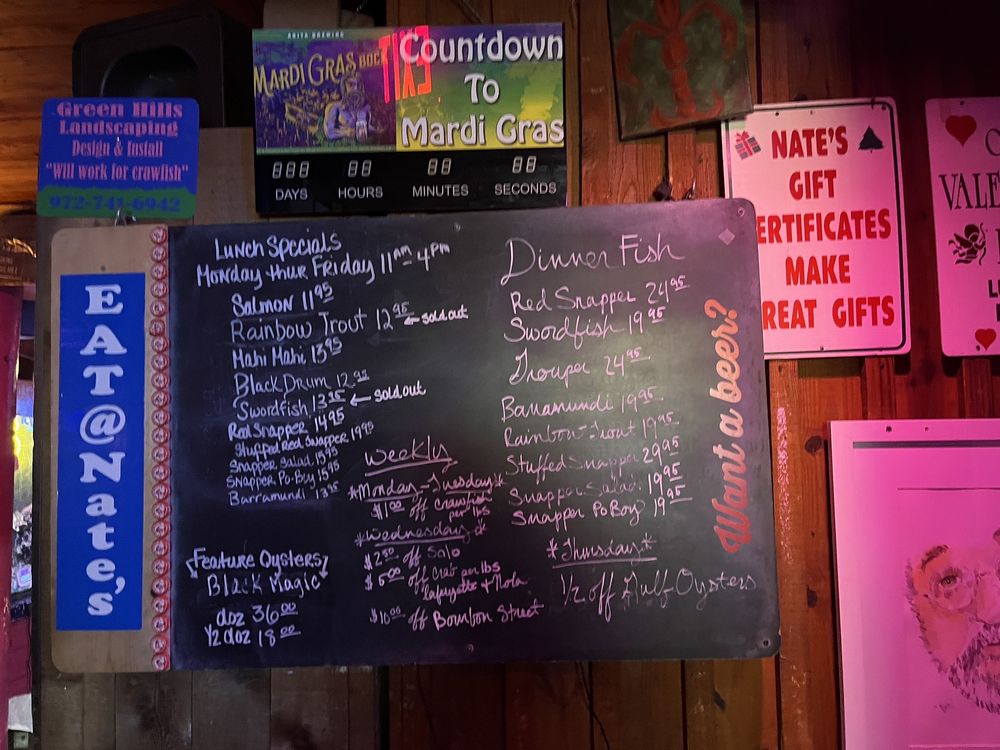 Green Hills
Landscaping
Design & Install
"Will work for crawfish"
972-741-6942
ABITA BREWING
MARDI GRAS BOCK
Countdown
To
Mardi Gras
DAYS HOURS MINUTES SECONDS
NATE'S
GIFT
ERTIFICATES
MAKE
REAT GIFTS
VALE
EAT@Nate's
Lunch Specials
Monday thur Friday 11AM-4PM
Salmon 11.95
Rainbow Trout 12.95 ← sold out
Mahi Mahi 13.95
Black Drum 12.95
Swordfish 13.95 ← sold out
Red Snapper 14.95
Stuffed Red Snapper 19.95
Snapper Salad 15.95
Snapper Po-Boy 15.95
Barramundi 13.95
{Feature Oysters}
Black Magic
doz 36.00
1/2 doz 18.00
Weekly
*Monday-Tuesday*
$1.00 off crawfish
per lbs
*Wednesday*
$2.50 off
$5.00 off Crab per lbs
Lafayette & Nola
$10.00 off Bourbon Street
Dinner Fish
Red Snapper 24.95
Swordfish 19.95
Grouper 24.95
Barramundi 19.95
Rainbow Trout 19.95
Stuffed Snapper 29.95
Snapper Salad 19.95
Snapper PoBoy 19.95
*Thursday*
1/2 off Gulf Oysters
Want a beer?